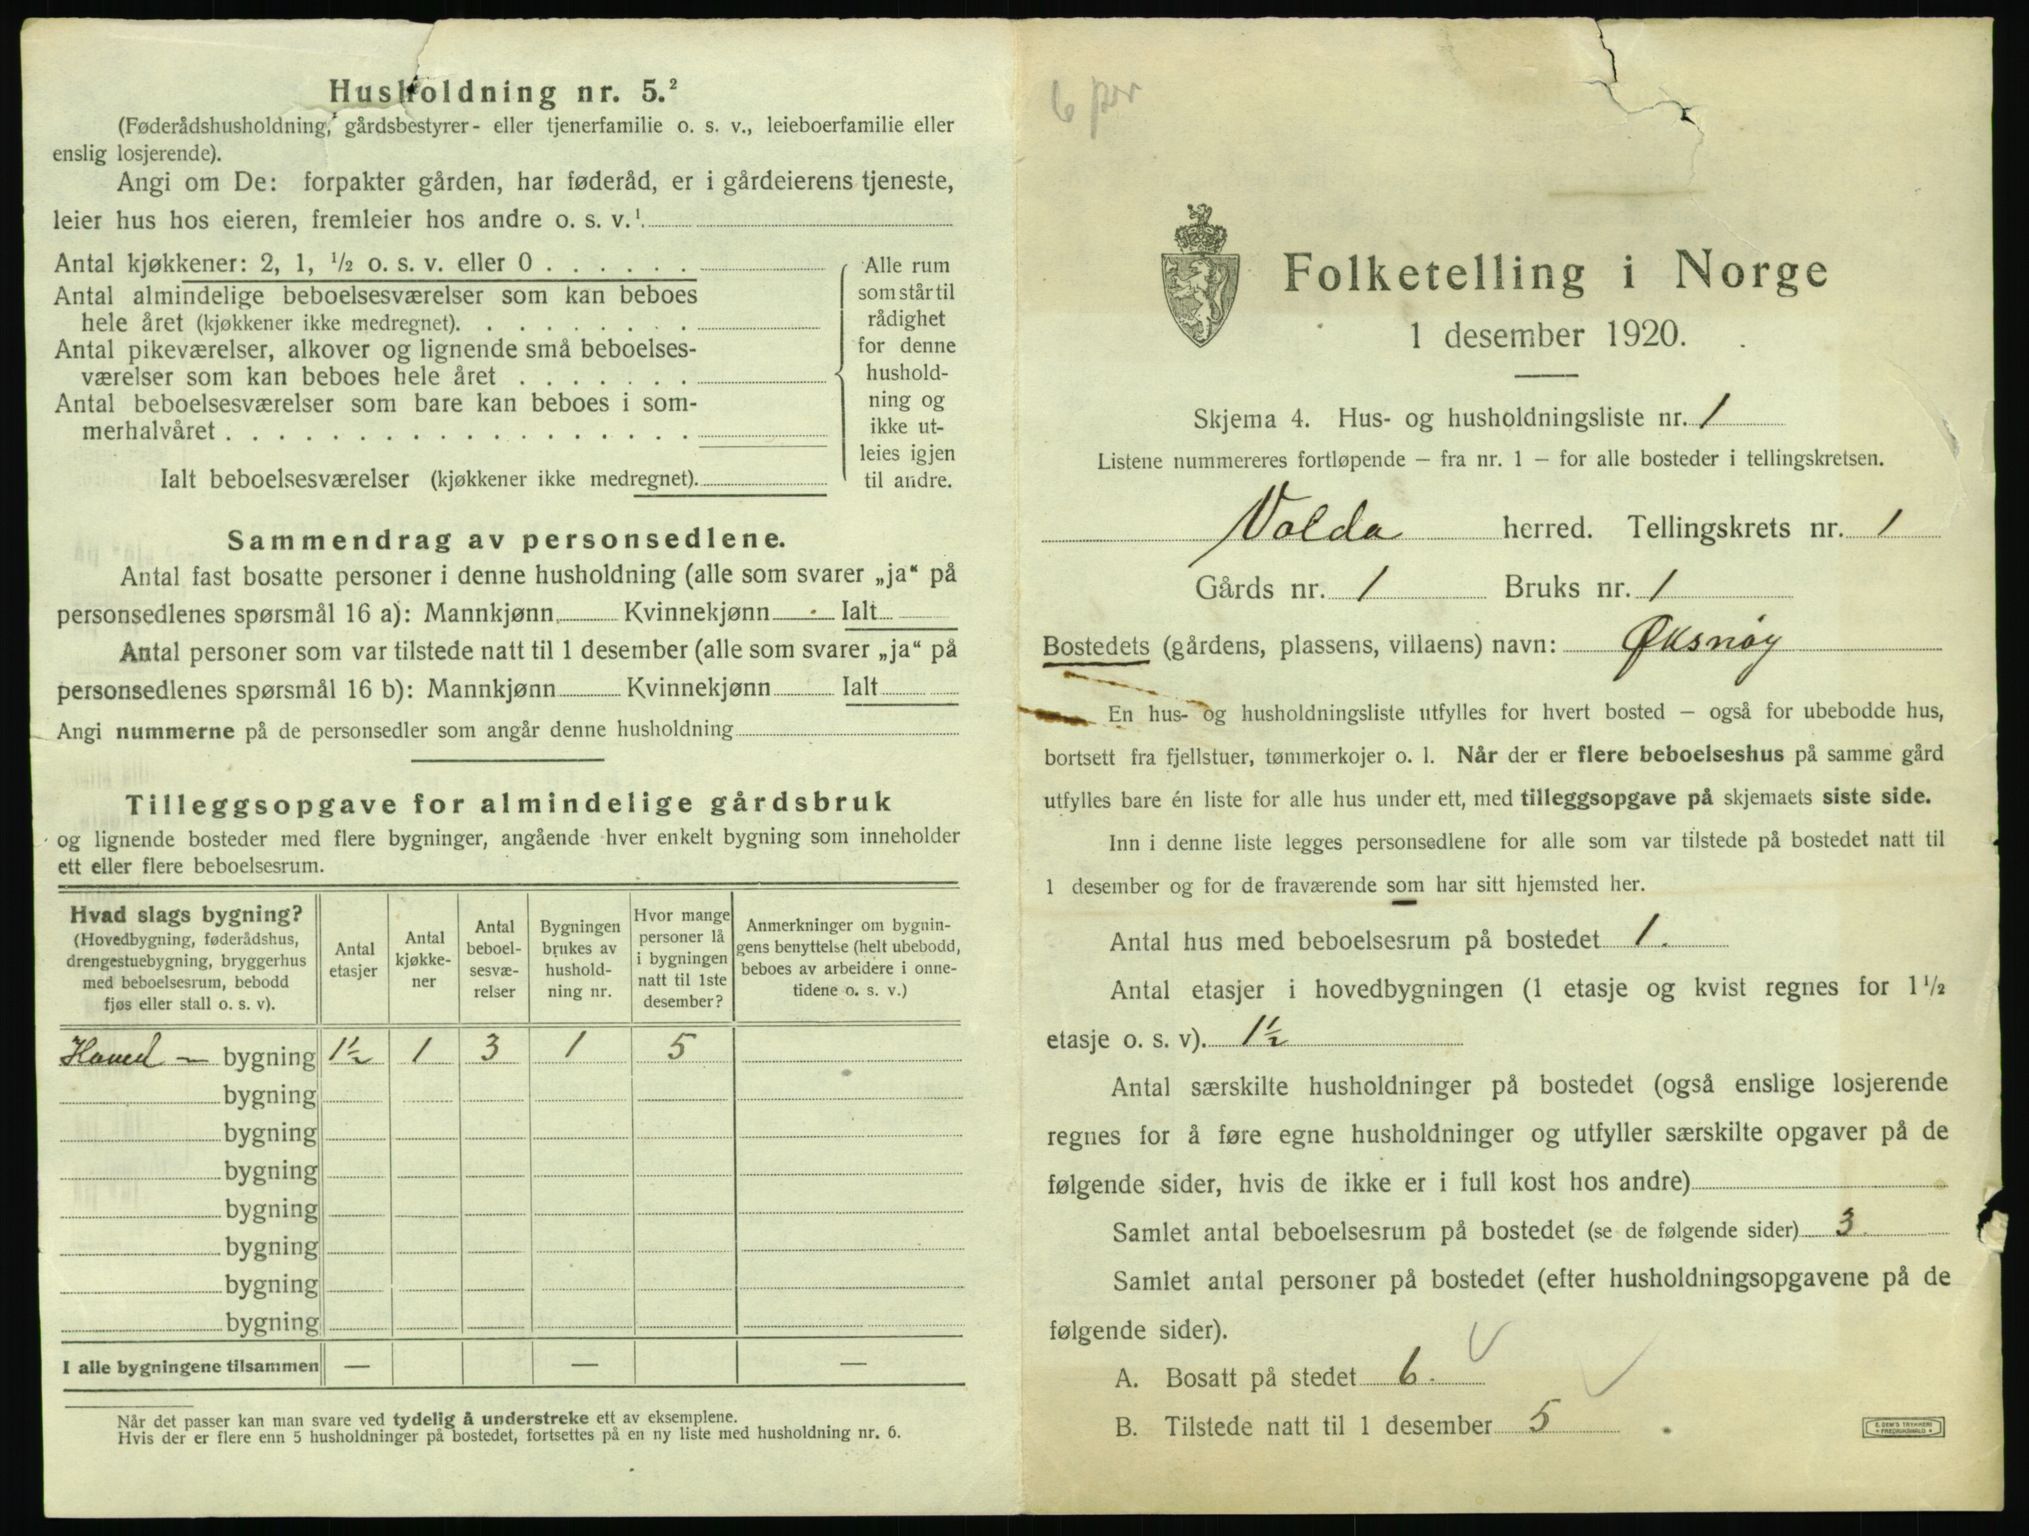 Husholdning nr. 5.²
(Føderådshusholdning, gårdsbestyrer- eller tjenerfamilie o. s. v., leieboerfamilie eller
enslig losjerende).
Angi om De: forpakter gården, har føderåd, er i gårdeierens tjeneste,
leier hus hos eieren, fremleier hos andre o. s. v.¹
Antal kjøkkener: 2, 1, ½ o. s. v. eller 0 . . . . . .
Antal almindelige beboelsesværelser som kan beboes
hele året (kjøkkener ikke medregnet). . . . . . . . .
Antal pikeværelser, alkover og lignende små beboelses-
værelser som kan beboes hele året . . . . . . .
Antal beboelsesværelser som bare kan beboes i som-
merhalvåret . . . . . . . . . . . . . . . . . .
Ialt beboelsesværelser (kjøkkener ikke medregnet).
Alle rum
som står til
rådighet
for denne
hushold-
ning og
ikke ut-
leies igjen
til andre.
Sammendrag av personsedlene.
Antal fast bosatte personer i denne husholdning (alle som svarer „ja“ på
personsedlenes spørsmål 16 a): Mannkjønn Kvinnekjønn Ialt
Antal personer som var tilstede natt til 1 desember (alle som svarer „ja“ på
personsedlenes spørsmål 16 b): Mannkjønn Kvinnekjønn Ialt
Angi nummerne på de personsedler som angår denne husholdning
Tilleggsopgave for almindelige gårdsbruk
og lignende bosteder med flere bygninger, angående hver enkelt bygning som inneholder
ett eller flere beboelsesrum.
Hvad slags bygning?
(Hovedbygning, føderådshus,
drengestuebygning, bryggerhus
med beboelsesrum, bebodd
fjøs eller stall o. s. v).
Antal
etasjer
Antal
kjøkke-
ner
Antal
beboel-
sesvæ-
relser
Bygningen
brukes av
hushold-
ning nr.
Hvor mange
personer lå
i bygningen
natt til 1ste
desember?
Anmerkninger om bygnin-
gens benyttelse (helt ubebodd,
beboes av arbeidere i onne-
tidene o. s. v.)
Hoved — bygning 1½ 1 3 1 5
bygning
bygning
bygning
bygning
bygning
bygning
bygning
I alle bygningene tilsammen — — —
Når det passer kan man svare ved tydelig å understreke ett av eksemplene.
Hvis der er flere enn 5 husholdninger på bostedet, fortsettes på en ny liste med husholdning nr. 6.
6 per
Folketelling i Norge
1 desember 1920.
Skjema 4. Hus- og husholdningsliste nr. 1
Listene nummereres fortløpende – fra nr. 1 – for alle bosteder i tellingskretsen.
Volda herred. Tellingskrets nr. 1
Gårds nr. 1 Bruks nr. 1
Bostedets (gårdens, plassens, villaens) navn: Øksnøy
En hus- og husholdningsliste utfylles for hvert bosted – også for ubebodde hus,
bortsett fra fjellstuer, tømmerkojer o. l. Når der er flere beboelseshus på samme gård
utfylles bare én liste for alle hus under ett, med tilleggsopgave på skjemaets siste side.
Inn i denne liste legges personsedlene for alle som var tilstede på bostedet natt til
1 desember og for de fraværende som har sitt hjemsted her.
Antal hus med beboelsesrum på bostedet 1.
Antal etasjer i hovedbygningen (1 etasje og kvist regnes for 1½
etasje o. s. v). 1½
Antal særskilte husholdninger på bostedet (også enslige losjerende
regnes for å føre egne husholdninger og utfyller særskilte opgaver på de
følgende sider, hvis de ikke er i full kost hos andre)
Samlet antal beboelsesrum på bostedet (se de følgende sider) 3.
Samlet antal personer på bostedet (efter husholdningsopgavene på de
følgende sider).
A. Bosatt på stedet 6.
B. Tilstede natt til 1 desember 5
E. SEM'S TRYKKERI
FREDRIKSHALD